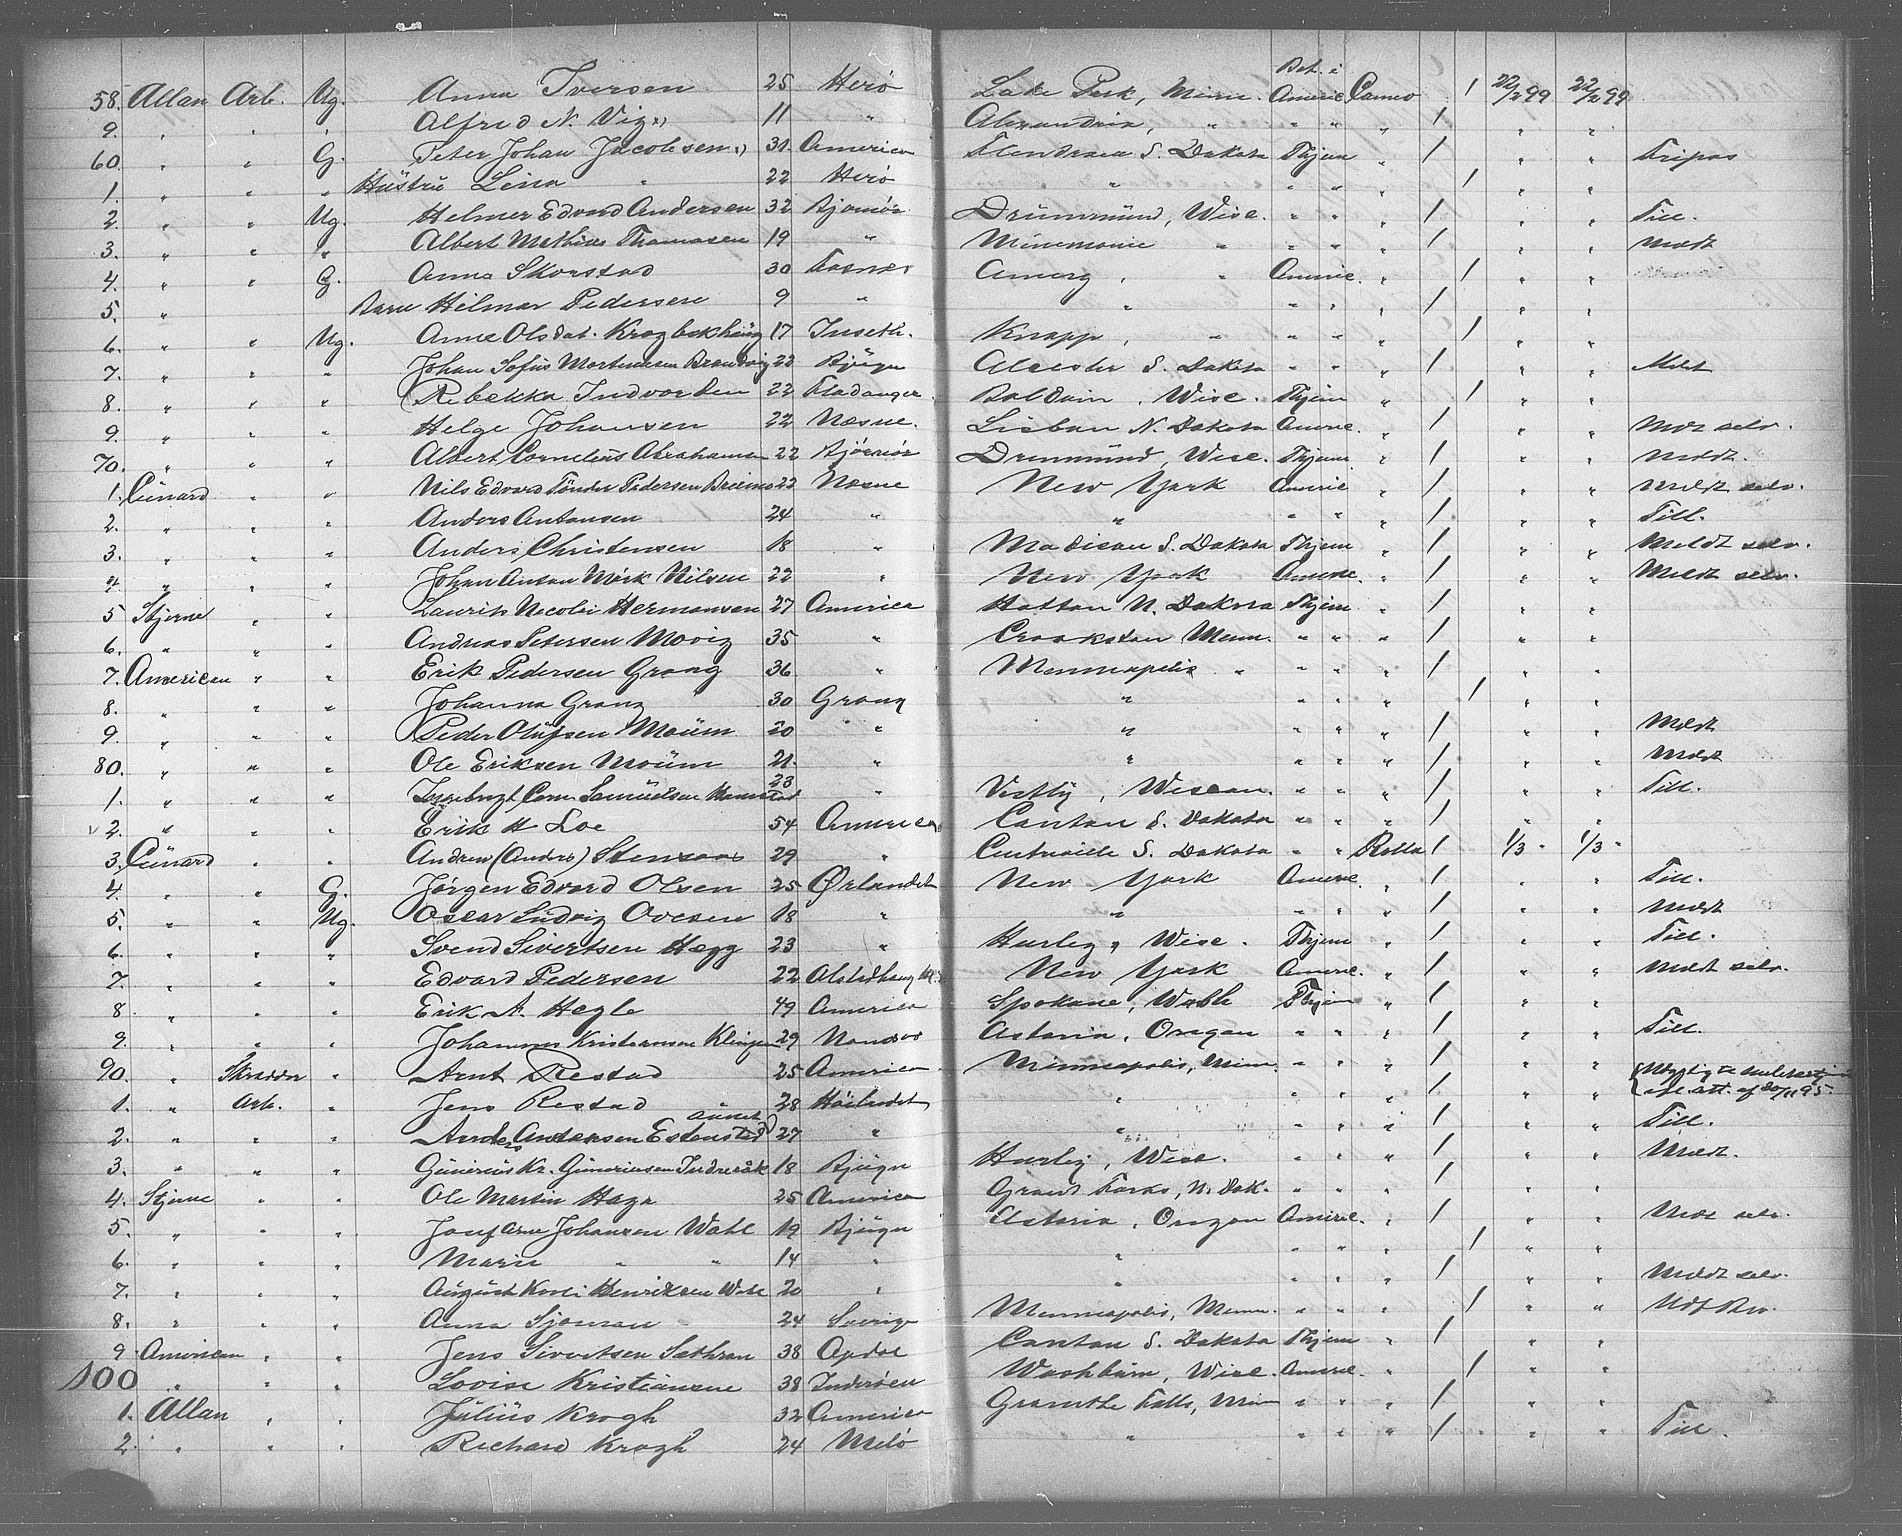 Bet. i
58. Allan Arb. Ug. Anna Iversen 25 Herö Lake Park, Minn. Americ. Cameo / 22/2 99 22/2 99
9. " " " Alfred N. Vig 11 " Alexandria, " " " " / " "
60. " " G. Peter Johan Jacobsen 31. America S. Dakota Thjem " / " " Fripas
1. " " " Hustru Lina " 22 Herö " " " " / " "
2. " " Ug. Helmer Edvard Andersen 32 Bjørnør Drummund, Wisc. " " " / " " Till.
3. " " " Albert Mathias Thomasen 19 " Minemonie " " " " / " " Meldt
4. " " G. Anna Skorstad 30 Fosnes Amerg, " Americ. " / " "
5. " Barn Hilmar Pedersen 9 " " " " " / " "
6. " " Ug. Anne Olsdat. Krogbekhaug 17 Inseth. Knapp, " " " " / " "
7. " " " Johan Sofus Mortensen Brandvig 22 Bjugn Alcester S. Dakota " " " / " " Meldt
8. " " " Rebekka Indvorden 22 Fladanger. Baldwin, Wisc. Thjem " / " "
9. " " " Helge Johansen 22 Næsne. Lisbon N. Dakota Americ. " / " " selv.
70. " " " Albert Cornelius Abrahamsen 22 Bjørnør Drummund, Wisc. Thjem " / " " Meldt.
1. Cunard " " Nils Edvard Tönder Pedersen 22 Næsne New York Americ " / " " Meldt selv.
2. " " " Anders Antonsen 24 " " " " " / " " Till.
3. " " " Anders Christensen 18 " Madison S. Dakota Thjem " / " " Meldt selv.
4. " " " Johan Anton Mörk Nilsen 22 " New York Americ. " / " " Meldt selv.
5 Stjerne " " Laurits Nicolai Hermansen 27 America Hatton N. Dakota Thjem " / " "
6. " " " Andreas Petersen Movig 35 " Crookston Minn. " " " / " "
7. American " " Erik Pedersen Grong 36 " Minneapolis " " " " / " "
8. " " " Johanna Grong 30 Grong " " " " / " "
9. " " " Peder Olufsen Moum 20 " " " " " / " " Meldt
80. " " " Ole Eriksen Moum 21. " " " " " / " " Meldt
1. " " " Samuelsen 23 " Viscon. " " " / " " Till.
2. " " " Erik H Loe 54 America Canton S. Dakota " " " / " "
3. Cunard " " Andrew (Anders) 29 " Centreville S. Dakota " " Rollo / 1/3 " 1/3 "
4. " " G. Jørgen Edvard Olsen 25 Ørlandet New York Americ. " / " " Till.
5. " " Ug. Oscar Ludvig Ovesen 18 " " " " " / " " Meldt
6. " " " Svend Sivertsen Hegg 23 " Hurley, Wisc. Thjem " / " " Till.
7. " " " Edvard Pedersen 22 New York Americ. " / " " Meldt selv.
8 " " " Erik A. Hegle 49 America Spokane, Wash Thjem " / " "
9. " " " Johannes Kristiansen 29 Namsos Astoria, Oregon " " " / " " Till.
90. " Skrædder " Arnt Restad 25 America Minneapolis, Minn. " " " / " "
1. " Arb. " Jens Restad 28 Höilandet " " " " / " " att. af 20/11 95.
2. " " " Anders Andersen Estenstad 27 " " " " " / " " Till.
3. " " " Gunerius Kr. Guneriusen 18 Bjugn Hurley, Wisc. " " " / " " Meldt.
4. Stjerne " " Ole Martin Haga 25 America Grand Forks, N. Dak. " " " / " "
5. " " " Johansen Wahl 19 Bjugn Astoria, Oregon Americ. " / " " selv.
6. " " " Marie " " 14 " " " " " / " "
7. " " " August Henriksen 20 " " " " " / " " Meldt selv.
8. " " " Anna Sjoman 24 Sverige Minneapolis, Minn. " " " / " "
9 American " " Jens Sivertsen Sæthran 38 Opdal Canton S. Dakota Thjem " / " "
100 " " " Lovise Kristiansen 38 Inderöen Washburn, Wisc. Americ. " / " "
1. Allan " " Julius Krogh 32 America Granitte Falls, Minn " " " / " "
2. " " " Richard Krogh 24 Melö " " " " / " " Till.